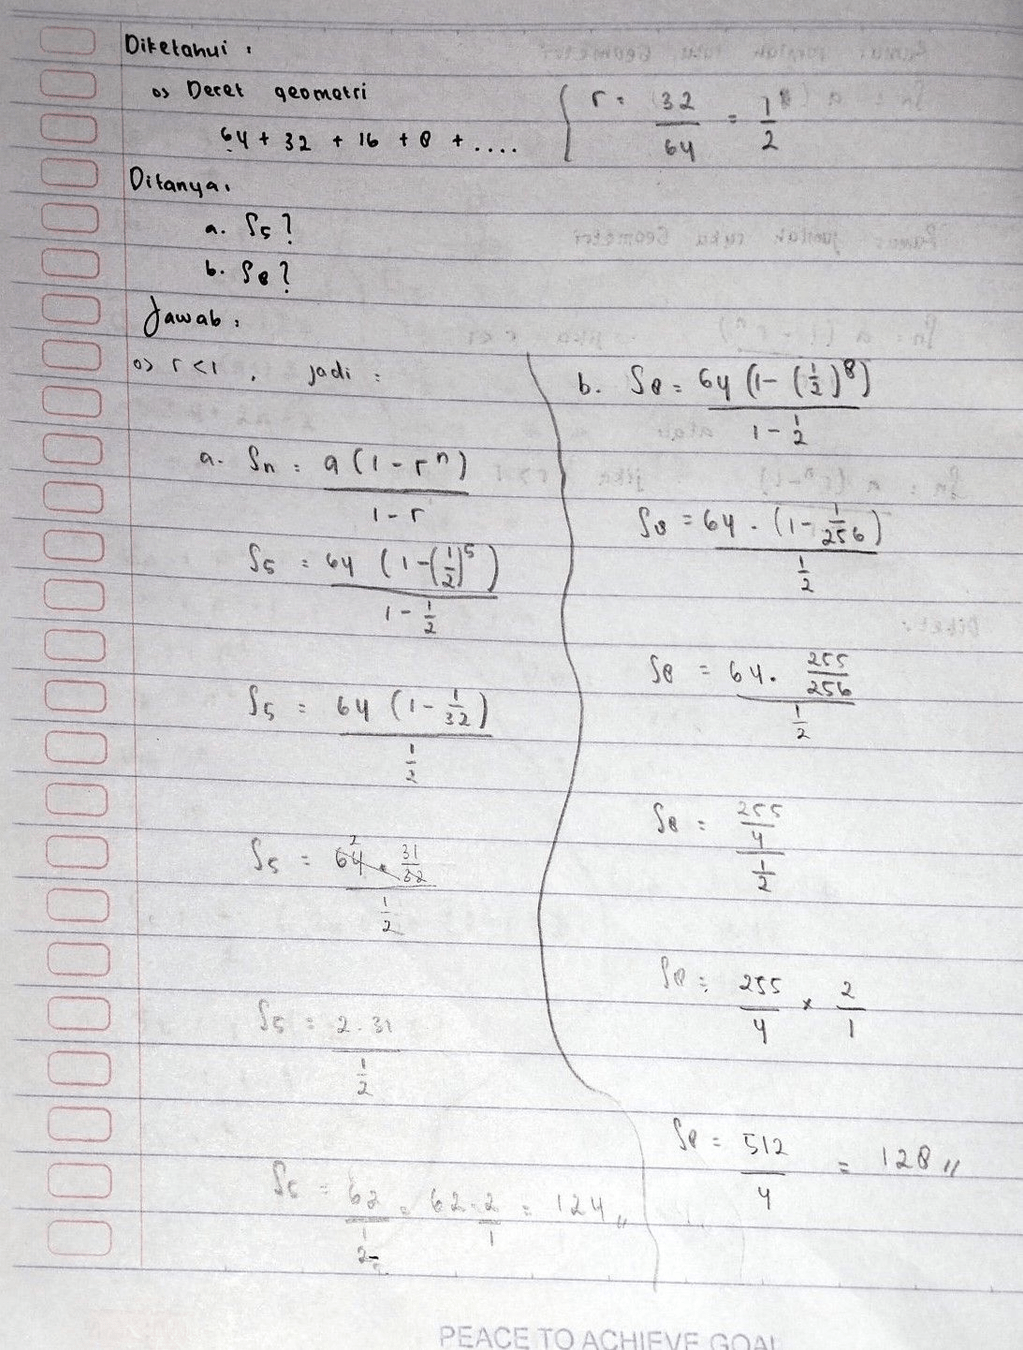 Diketahui :
=> Deret geometri
64 + 32 + 16 + 8 + ....
r = 32/64 = 1/2
Ditanya :
a. S5 ?
b. S8 ?
Jawab :
=> r < 1 , jadi :
a. Sn = a (1 - r^n) / 1 - r
S5 = 64 (1 - (1/2)^5) / 1 - 1/2
S5 = 64 (1 - 1/32) / 1/2
S5 = 64 2 . 31/32 / 1/2
S5 = 2 . 31 / 1/2
S5 = 62 / 1/2 = 62 . 2/1 = 124 //
b. S8 = 64 (1 - (1/2)^8) / 1 - 1/2
S8 = 64 . (1 - 1/256) / 1/2
S8 = 64 . 255/256 / 1/2
S8 = 255/4 / 1/2
S8 = 255/4 x 2/1
S8 = 512/4 = 128 //
PEACE TO ACHIEVE GOAL